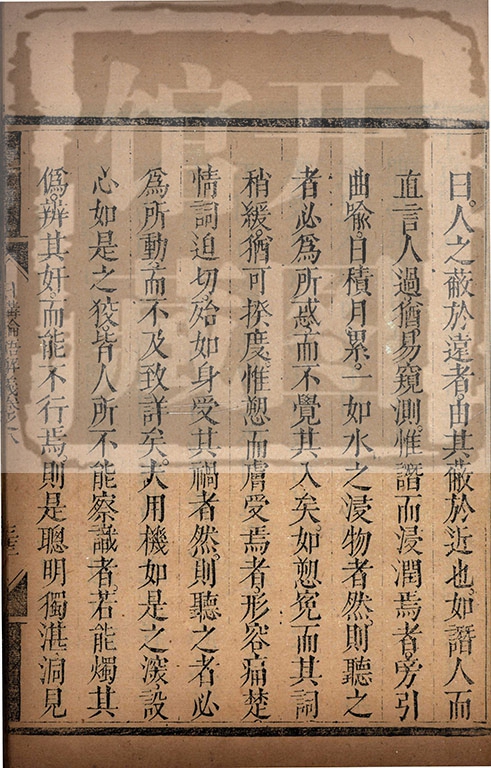 曰人之蔽於遠者由其蔽於近也如譖人而
直言人過猶易窺測惟譖而浸潤焉者旁引
曲喻日積月累一如水之浸物者然則聽之
者必為所惑而不覺其入矣如愬冤而其詞
稍緩猶可揆度惟愬而膚受焉者形容痛楚
情詞迫切殆如身受其禍者然則聽之者必
為所動而不及致詳矣夫用機如是之深設
心如是之狡皆人所不能察識者若能燭其
偽辨其奸而能不行焉則是聰明獨湛洞見